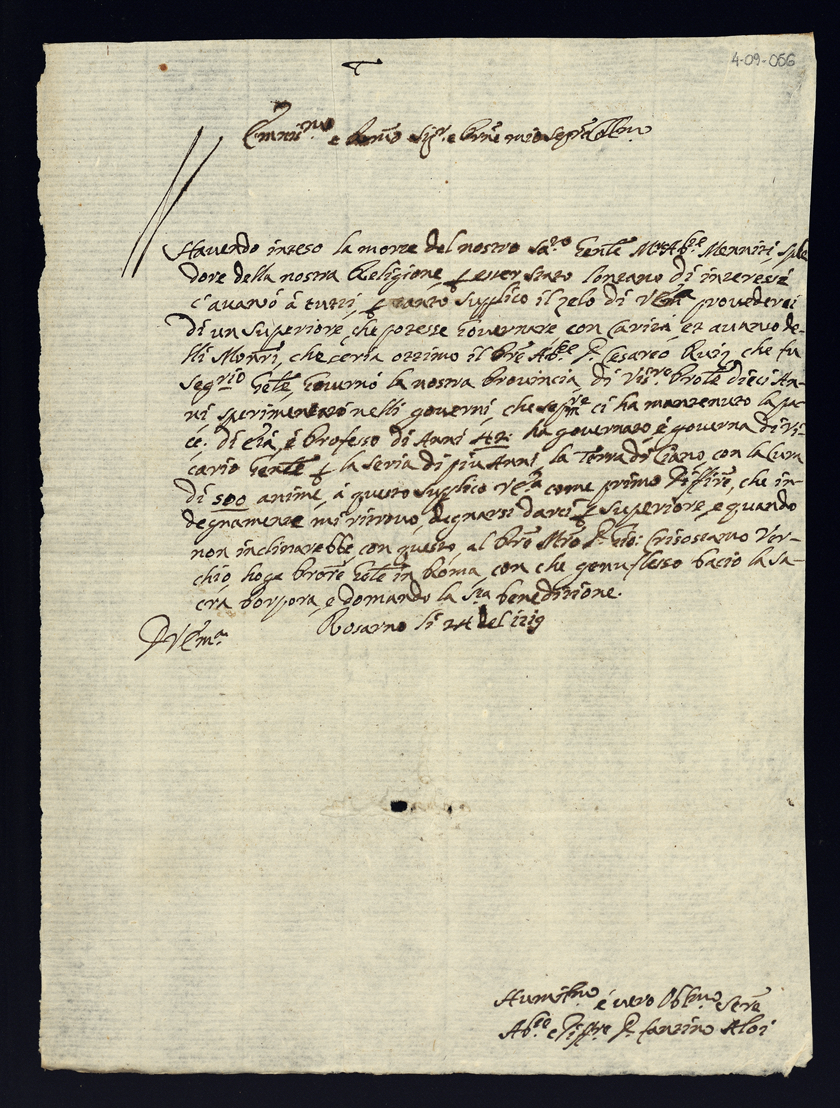 4-09-066
Emin.mo e R.mo Sig.r e Prne mio
Hauendo inteso la morte del nostro Generale Abb.e Menniti, Sple
dore della nostra Religione, p esser stato lontano di interessi
e auanzò à tutti, p tanto supplico il zelo di V. Em.a prouederci
di un Superiore, che potesse gouernare con carità, et auanzo de-
lli Mon.ri, che ceria ottimo il Pre Abb.e D. Cesareo Ruis, che fu
Seg.rio Gnle, gouernò la nostra Prouincia, di dieci An-
ni sperimentato nelli gouerni, che sempre ci ha mantenuto la pa-
ce. di età, è Professo di Anni 42: ha gouernato, e gouerna di Vi-
cario Gnle p la seria di più Anni, la Terra di Ciano con la Cura
di 500 anime, à questo supplico V. Em.a come primo Diffire, che in-
degnamente mi ritrouo, degnarsi darci p Superiore, e quando
non inclinarebbe con questo, al Pre Mro D. Gio: Crisostamo Ver-
chio, hoge Prore Gnle in Roma, con che genuflesso bacio la Sa-
cra Porpora, e domando la S.ta benedizione.
D V Em.a Rosarno li 24 del 1719
Humil.mo è vero Obl.mo Serre
Abb.e e Diff.re D. Fantino Aloi